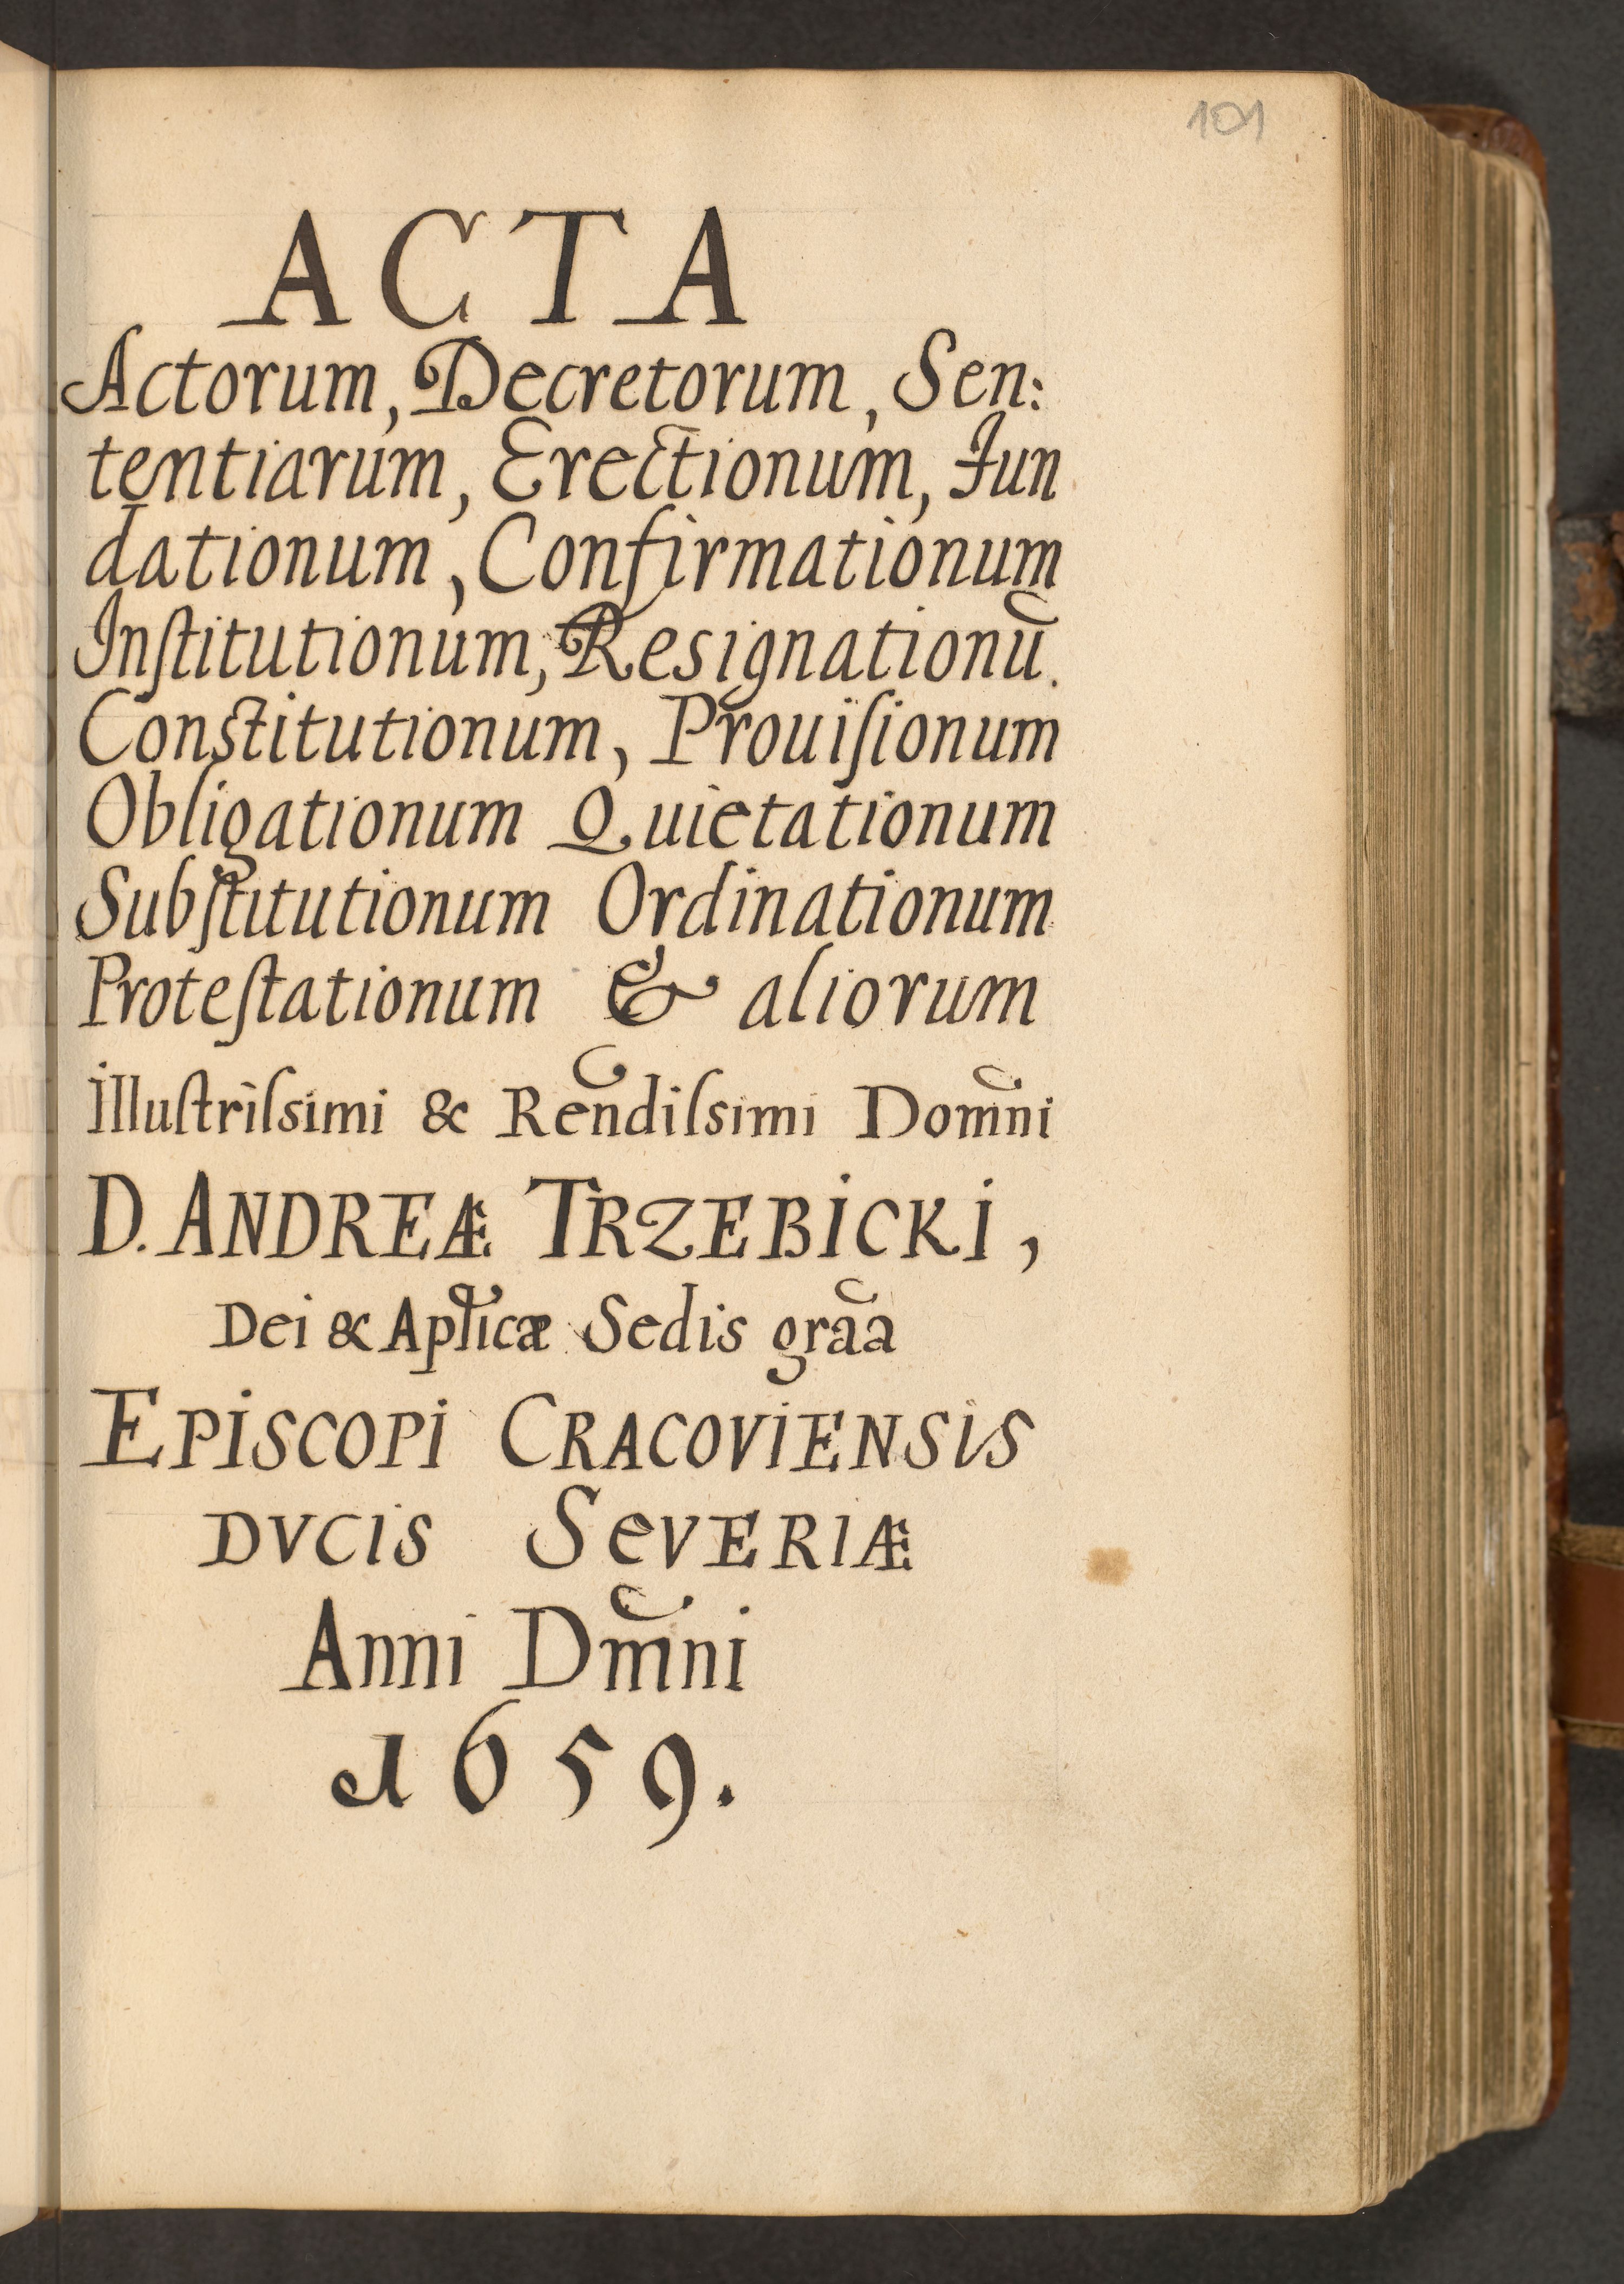 101
ACTA
Actorum, Decretorum, Sen:
tentiarum, Erectionum, Fun
dationum, Confirmationum
Inſtitutionum, Resignationū.
Constitutionum, Prouiſionum
Obligationum Quietationum
Subſtitutionum Ordinationum
Proteſtationum & aliorum
Illuſtriſsimi & Rendiſsimi Domni
D. ANDREÆ TRZEBICKI,
Dei & Aplicæ Sedis graa
EPISCOPI CRACOVIENSIS
DVCIS SEVERIÆ
Anni Dmni
1659.